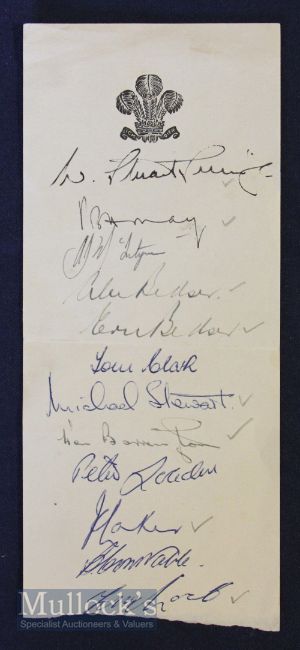 W. Stuart Surridge
PBH May
McIntyre
Alec Bedser.
Eric Bedser
Tom Clark
Michael Stewart.
Ken Barrington
Peter Loader
J Laker
B Constable.
Tony Lock
Mullock's
Specialist Auctioneers & Valuers